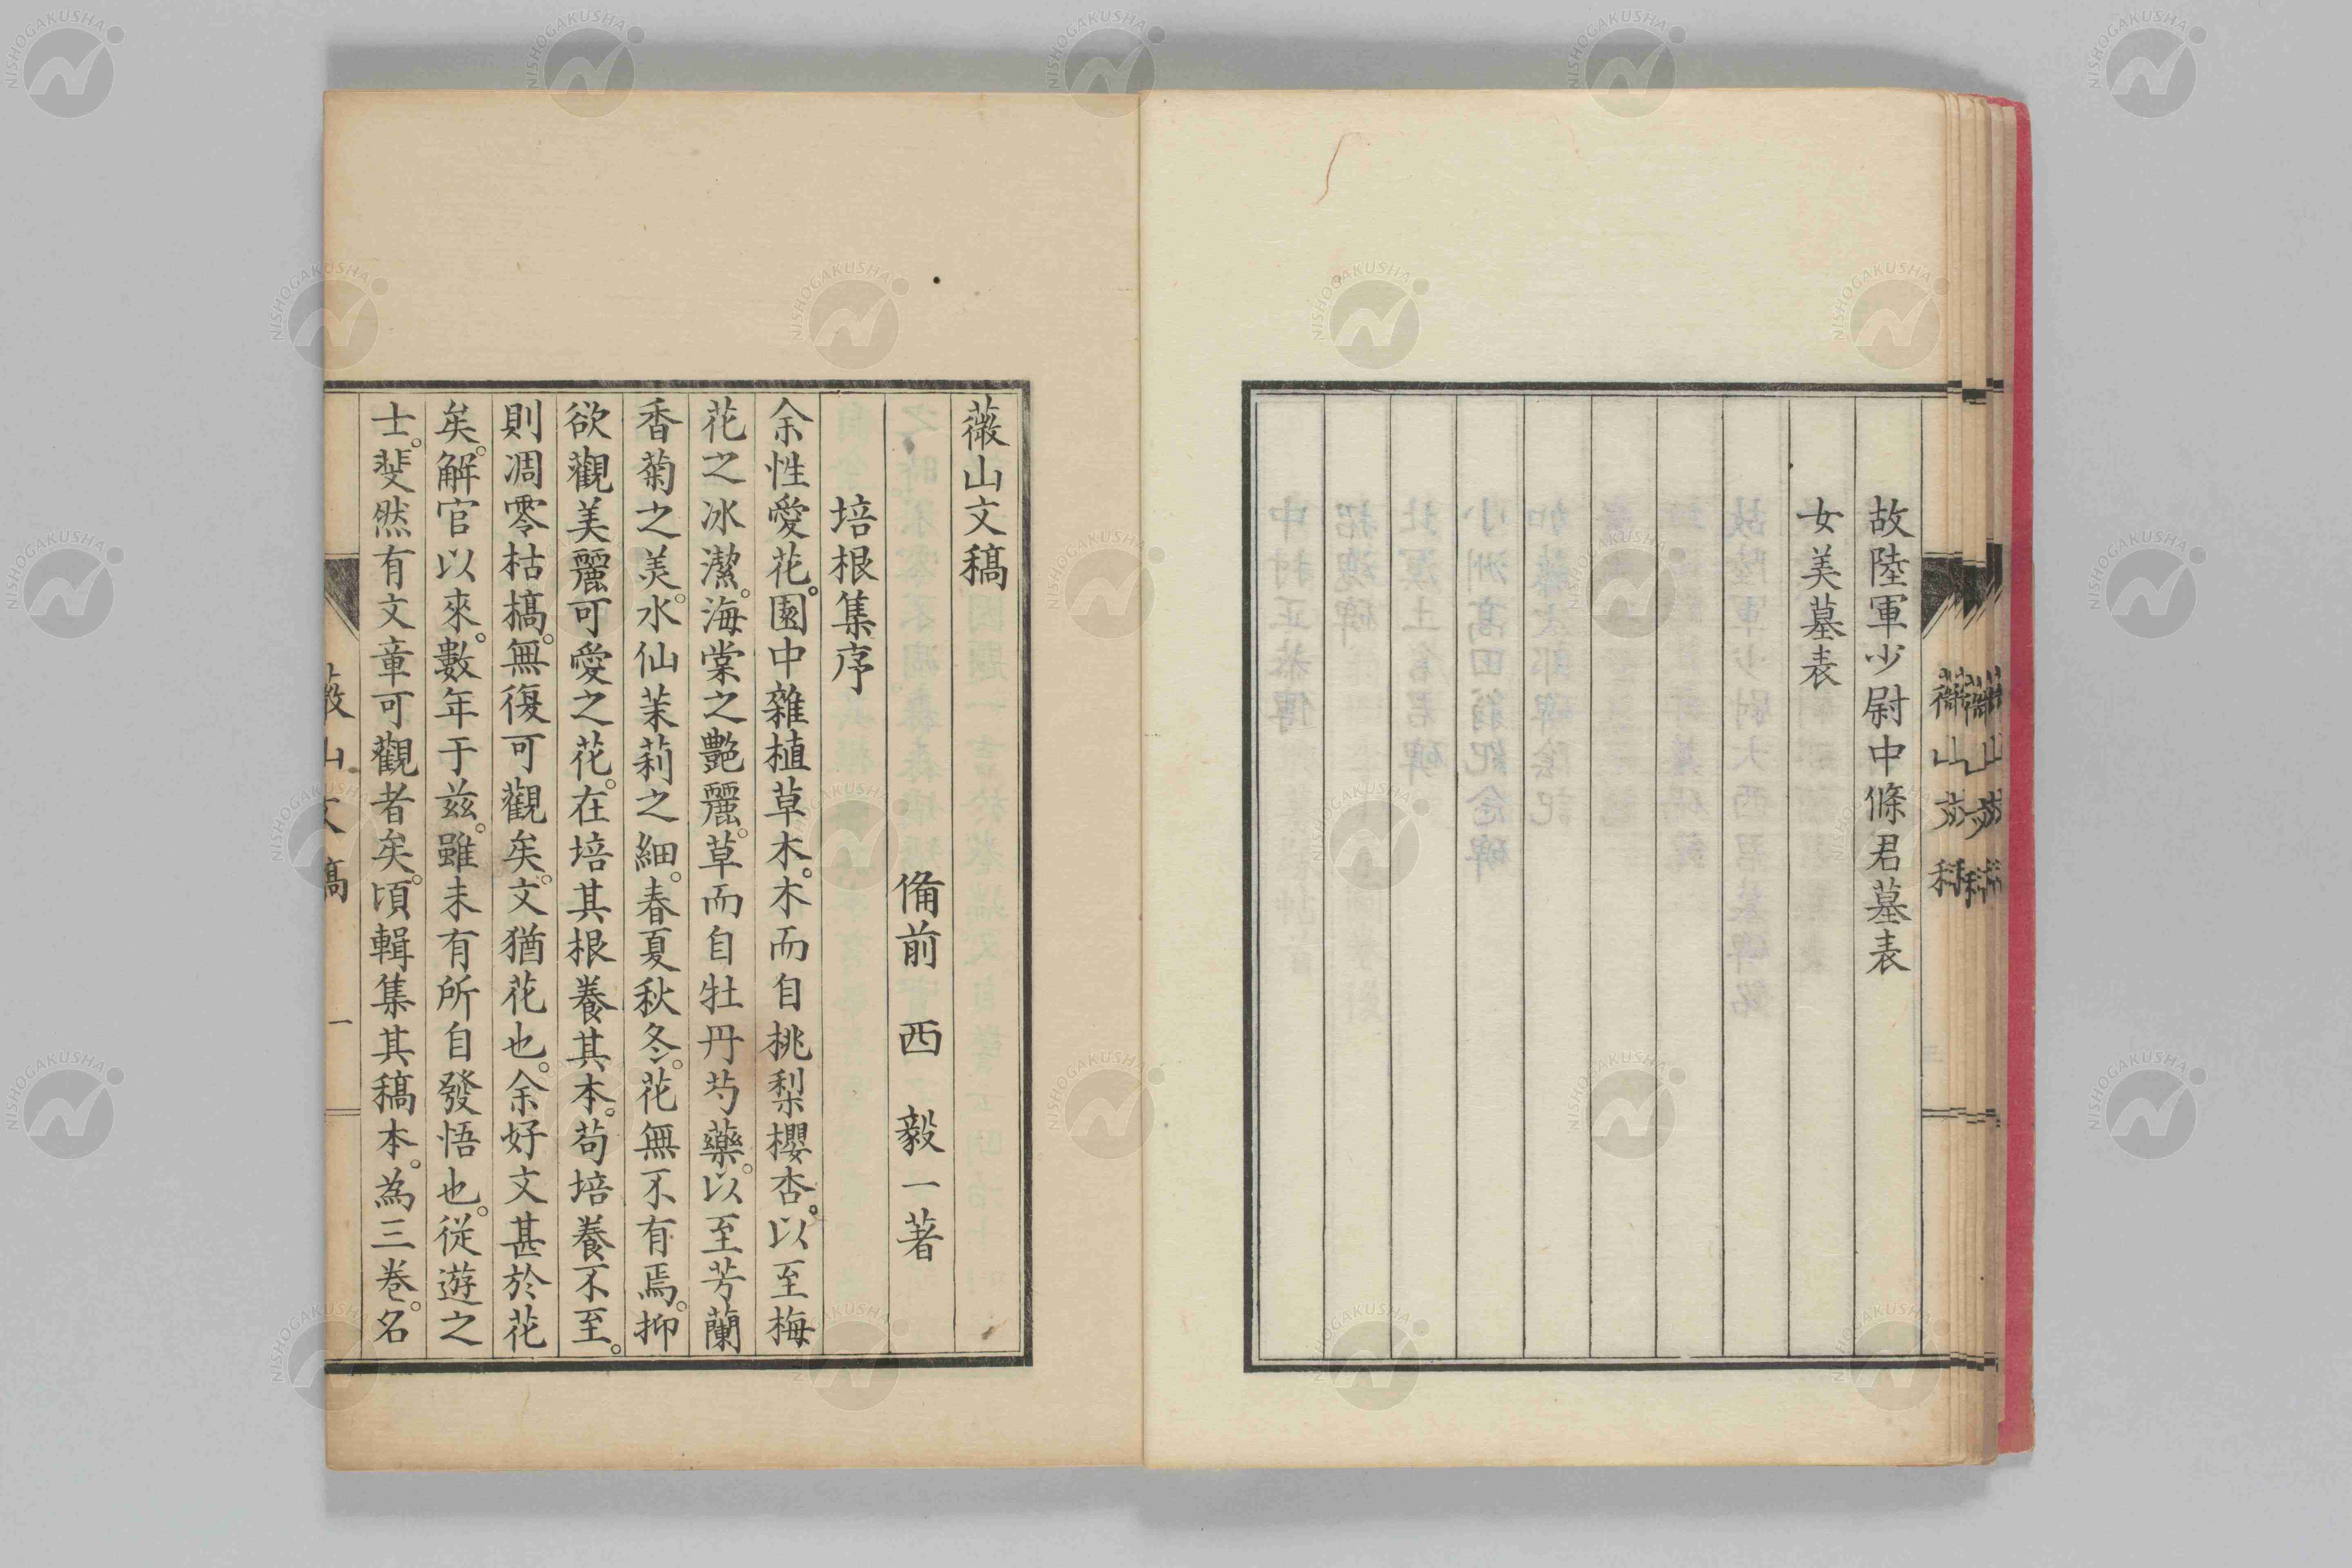 故陸軍少尉中條君墓表
女美墓表
薇山文稿
備前 西 毅一著
培根集序
余性愛花。園中雜植草木。木而自桃梨櫻杏。以至梅
花之冰潔。海棠之艷麗。草而自牡丹芍藥。以至芳蘭
香菊之美。水仙茉莉之細。春夏秋冬。花無不有焉。抑
欲觀美麗可愛之花。在培其根養其本。苟培養不至。
則凋零枯槁。無復可觀矣。文猶花也。余好文甚於花
矣。解官以來。數年于茲。雖未有所自發悟也。從遊之
士。斐然有文章可觀者矣。頃輯集其稿本。為三卷。名
薇山文稿
一
NISHOGAKUSHA